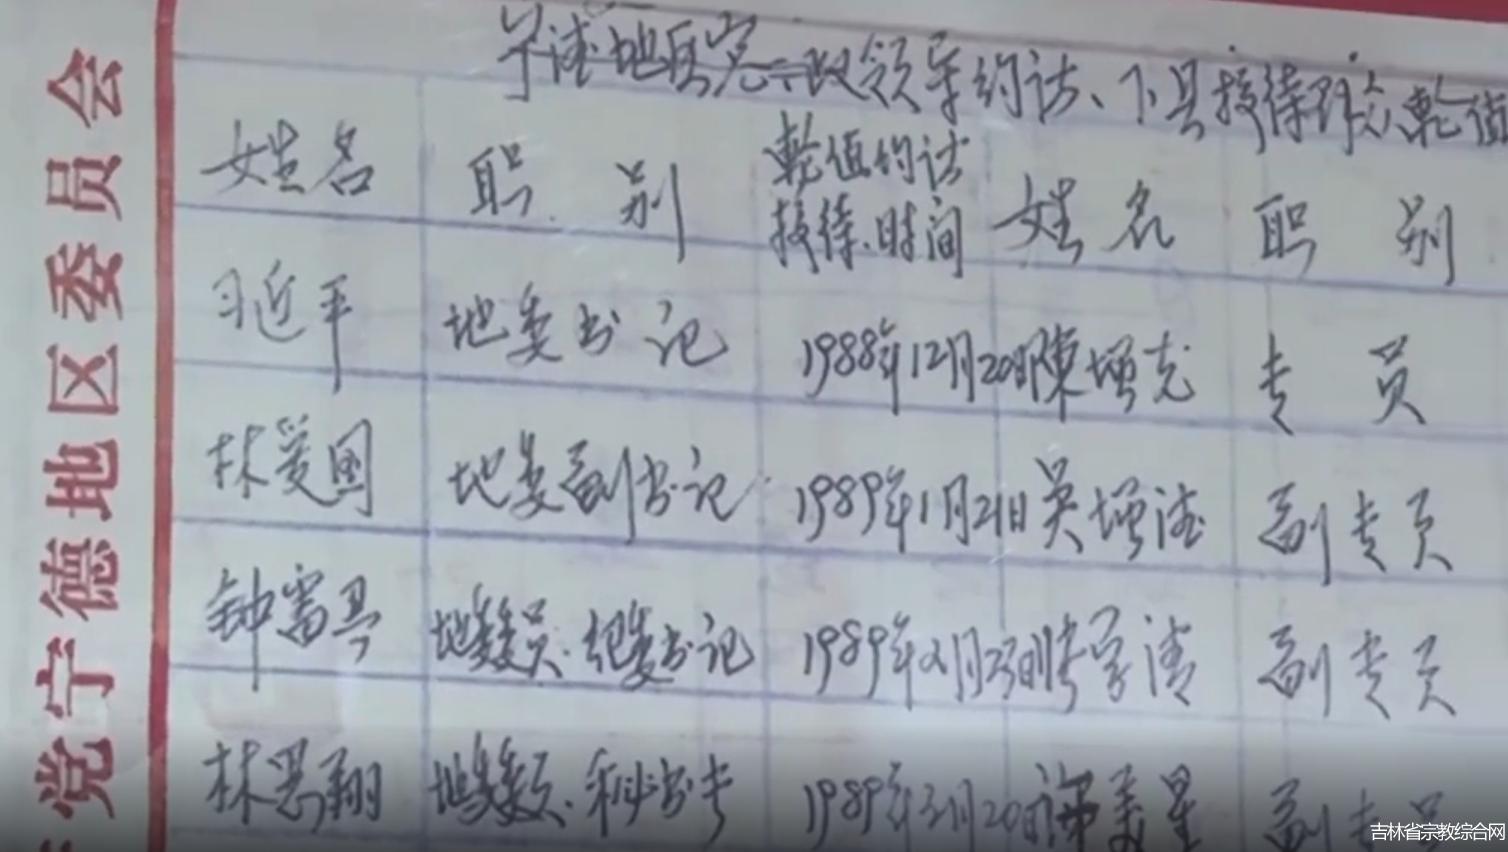 党宁德地区委员会
宁德地区党政领导约访、下县接待群众轮值
姓名 职别 轮值约访接待时间 姓名 职别
习近平 地委书记 1988年12月20日 陈增光 专员
林爱国 地委副书记 1989年1月21日 吴增德 副专员
钟雷兴 地委委员、纪委书记 1989年2月23日 副专员
林思翔 地委委员、秘书长 1989年3月20日 许美星 副专员
吉林省宗教综合网